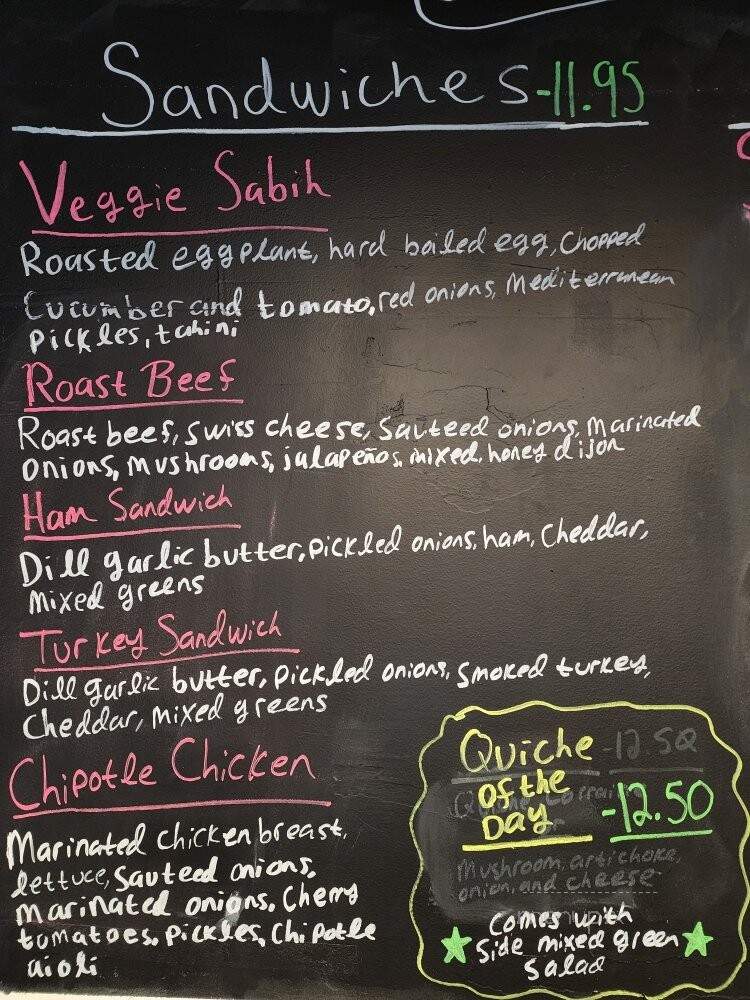 Sandwiches -11.95
Veggie Sabih
Roasted eggplant, hard boiled egg, chopped
Cucumber and tomato, red onions, Mediterranean
pickles, tahini
Roast Beef
Roast beef, swiss cheese, Sauteed onions, Marinated
onions, mushrooms, jalapeños, mixed, honey dijon
Ham Sandwich
Dill garlic butter, pickled onions, ham, Cheddar,
mixed greens
Turkey Sandwich
Dill garlic butter, pickled onions, smoked turkey,
Cheddar, mixed greens
Chipotle Chicken
Marinated chicken breast,
lettuce, Sauteed onions,
marinated onions, Cherry
tomatoes, pickles, Chipotle
aioli
Quiche -12.50
of the
Day -12.50
Mushroom, artichoke,
onion, and cheese
Comes with
side mixed green
Salad